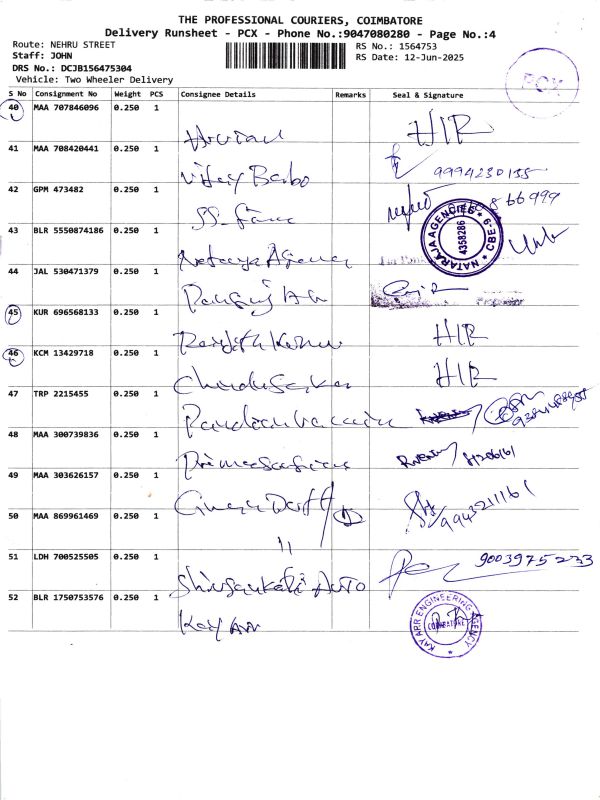 THE PROFESSIONAL COURIERS, COIMBATORE
Delivery Runsheet - PCX - Phone No.:9047080280 - Page No.:4
Route: NEHRU STREET
RS No.: 1564753
Staff: JOHN
RS Date: 12-Jun-2025
DRS No.: DCJB156475304
Vehicle: Two Wheeler Delivery
PCX
S No Consignment No Weight PCS Consignee Details Remarks Seal & Signature
40 MAA 707846096 0.250 1 HIR
41 MAA 708420441 0.250 1
Vijay Barbo 9994230135
42 GPM 473482 0.250 1
43 BLR 5550874186 0.250 1
NATARAJA AGENCIES * CBE-9 *
4358286
Nataraja Agency
44 JAL 530471379 0.250 1
45 KUR 696568133 0.250 1 HIR
Ranjith Kumar
46 KCM 13429718 0.250 1 HIR
Chandrasekar
47 TRP 2215455 0.250 1
48 MAA 300739836 0.250 1
49 MAA 303626157 0.250 1
9943211161
50 MAA 869961469 0.250 1
"
51 LDH 700525505 0.250 1 9003975233
Shivsankari Auto
52 BLR 1750753576 0.250 1
KAY ARR ENGINEERING AGENCY
COIMBATORE
Kay Arr